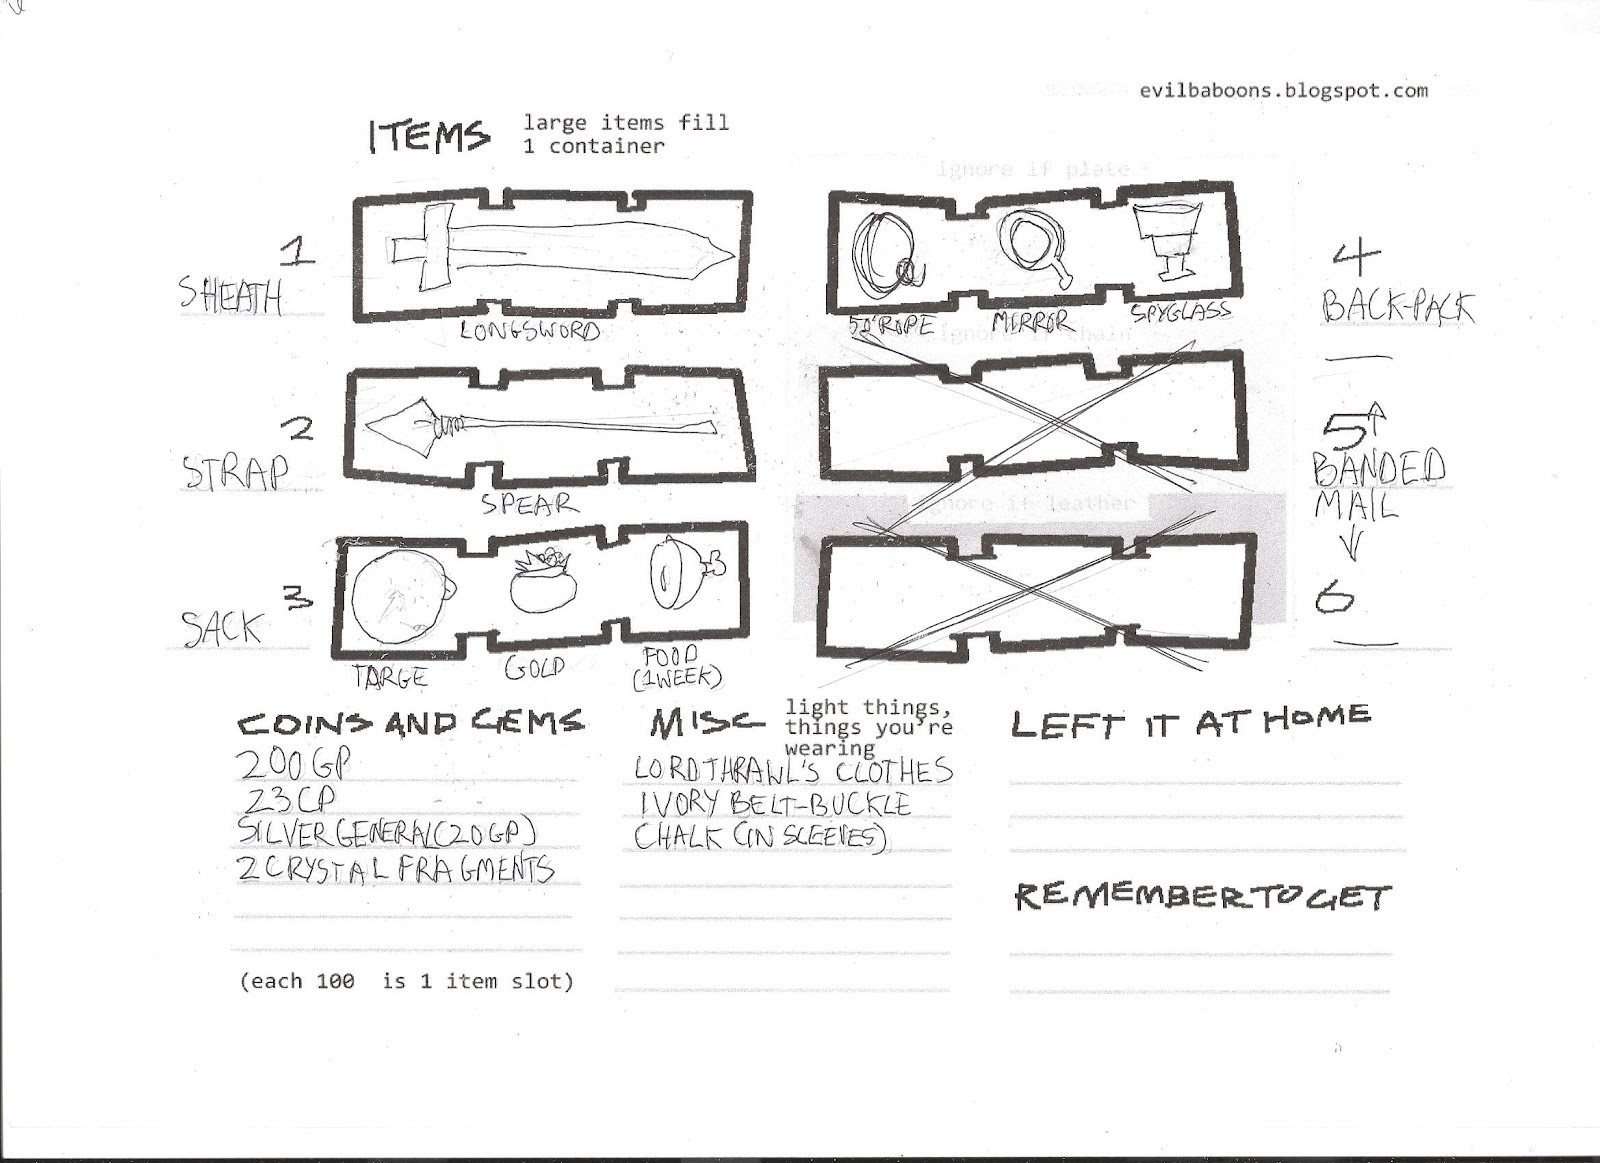 evilbaboons.blogspot.com
ITEMS
large items fill
1 container
ignore if plate
1
SHEATH
LONGSWORD
50' ROPE
MIRROR
SPYGLASS
4
BACK-PACK
ignore if chain
2
STRAP
SPEAR
5
BANDED
MAIL
ignore if leather
3
SACK
TARGE
GOLD
FOOD
(1 WEEK)
6
COINS AND GEMS
200 GP
23 CP
SILVER GENERAL (20 GP)
2 CRYSTAL FRAGMENTS
(each 100 is 1 item slot)
MISC
light things,
things you're
wearing
LORD THRAWL'S CLOTHES
IVORY BELT-BUCKLE
CHALK (IN SLEEVES)
LEFT IT AT HOME
REMEMBER TO GET